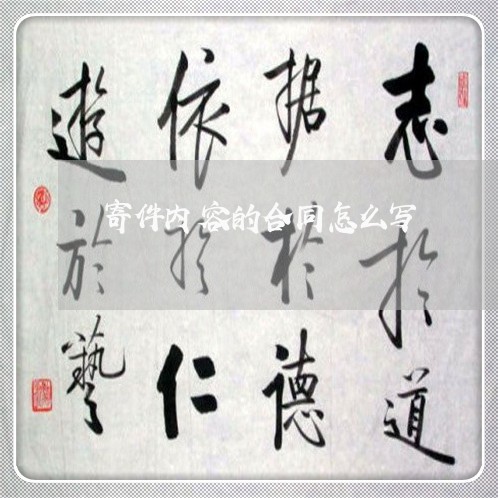 志於道
据於德
依於仁
遊於藝
寄件内容的合同怎么写